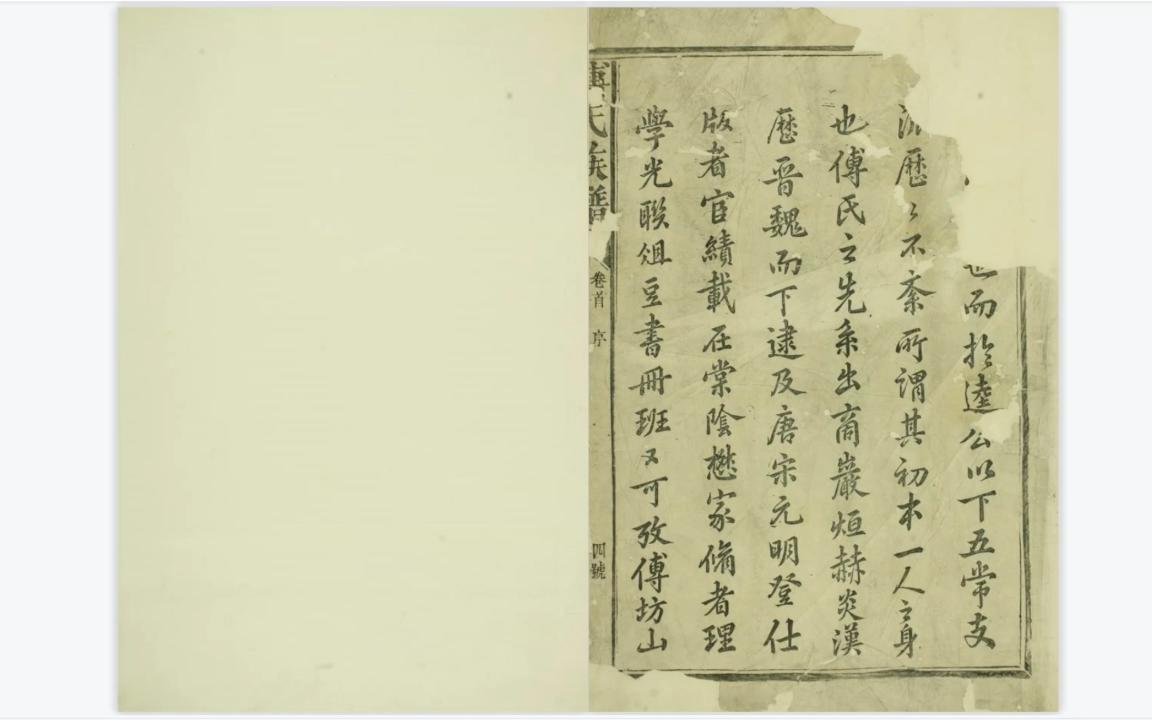 也而於逵公以下五常支
派歷〻不紊所謂其初本一人之身
也傅氏之先系出商巖烜赫炎漢
歷晉魏而下逮及唐宋元明登仕
版者官績載在棠陰懋家脩者理
學光聯俎豆書冊班又可攷傅坊山
傅氏族譜
卷首 序
四號